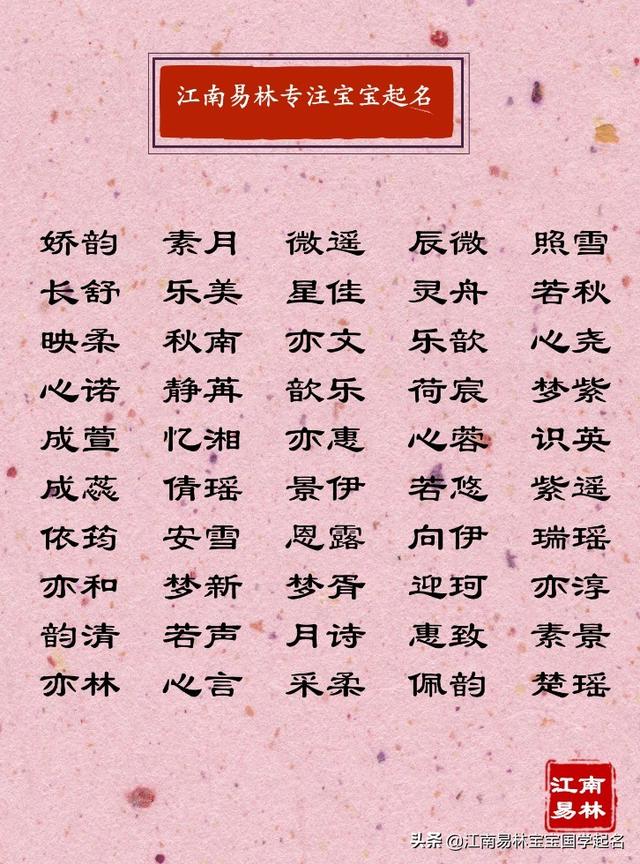 江南易林专注宝宝起名
娇韵 素月 微遥 辰微 照雪
长舒 乐美 星佳 灵舟 若秋
映柔 秋南 亦文 乐歆 心尧
心诺 静苒 歆乐 荷宸 梦紫
成萱 忆湘 亦惠 心蓉 识英
成蕊 倩瑶 景伊 若悠 紫遥
依筠 安雪 恩露 向伊 瑞瑶
亦和 梦新 梦胥 迎珂 亦淳
韵清 若声 月诗 惠致 素景
亦林 心言 采柔 佩韵 楚瑶
江南
易林
头条 @江南易林宝宝国学起名